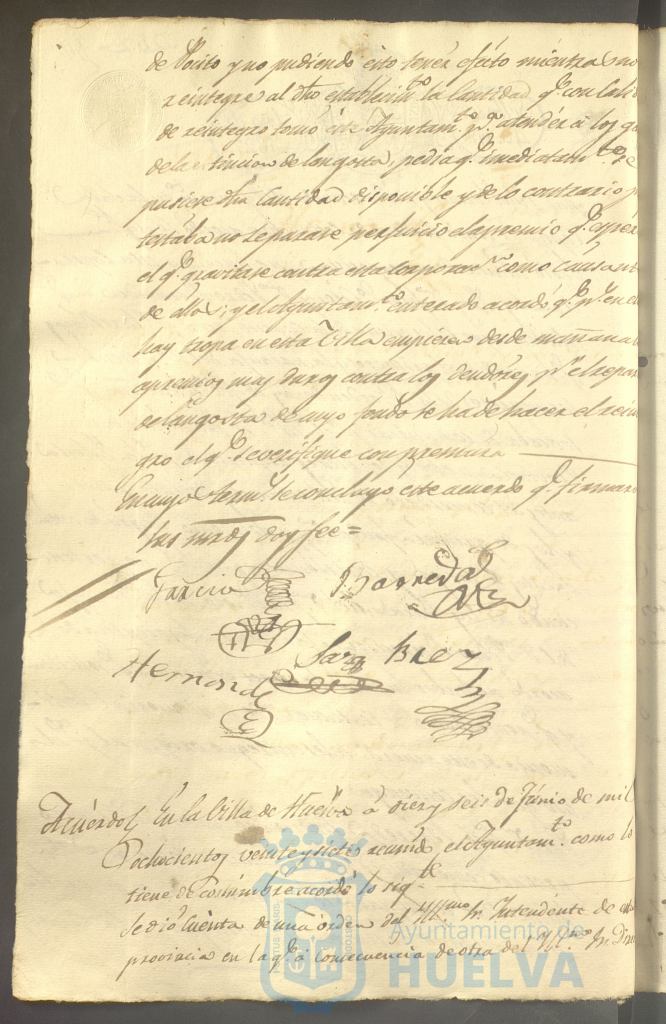 de Posito y no pudiendo esto tener efecto mientras no
reintegre al dho establecim.to la Cantidad q.e con Cali
de reintegro tomó este Ayuntam.to p.a atender á los ga
de la estincion de langosta, pedia q.e imediatam.te se
pusiese dha Cantidad disponible y de lo contrario p
testaba no le parase perjuicio el apremio q.e
el q.e gravitase contra esta corporac.n como causant
de ella; y el Ayuntam.to enterado acordó q.e p.r en
hay tropa en esta Villa empiecen desde mañana
apremios mas duros contra los deudores p.r el repar
de langosta de cuyo fondo se ha de hacer el rein
gro el q.e se verifique con premura
En cuyos term.s se concluyó este acuerdo q.e firmaro
sus mrds doy fée=
Garcia Barreda
Hernand Saez Baez
Acuerdo En la Villa de Huelva á diez y seis de Junio de mil
ochocientos veinte y siete reunido el Ayuntam.to como lo
tiene de costumbre acordó lo sig.te
Se dió cuenta de una orden del Yll.mo Sr. Intendente de esta
provincia en la q.e á consecuencia de otra del Yll.mo Sr. Dire
Ayuntamiento de
HUELVA